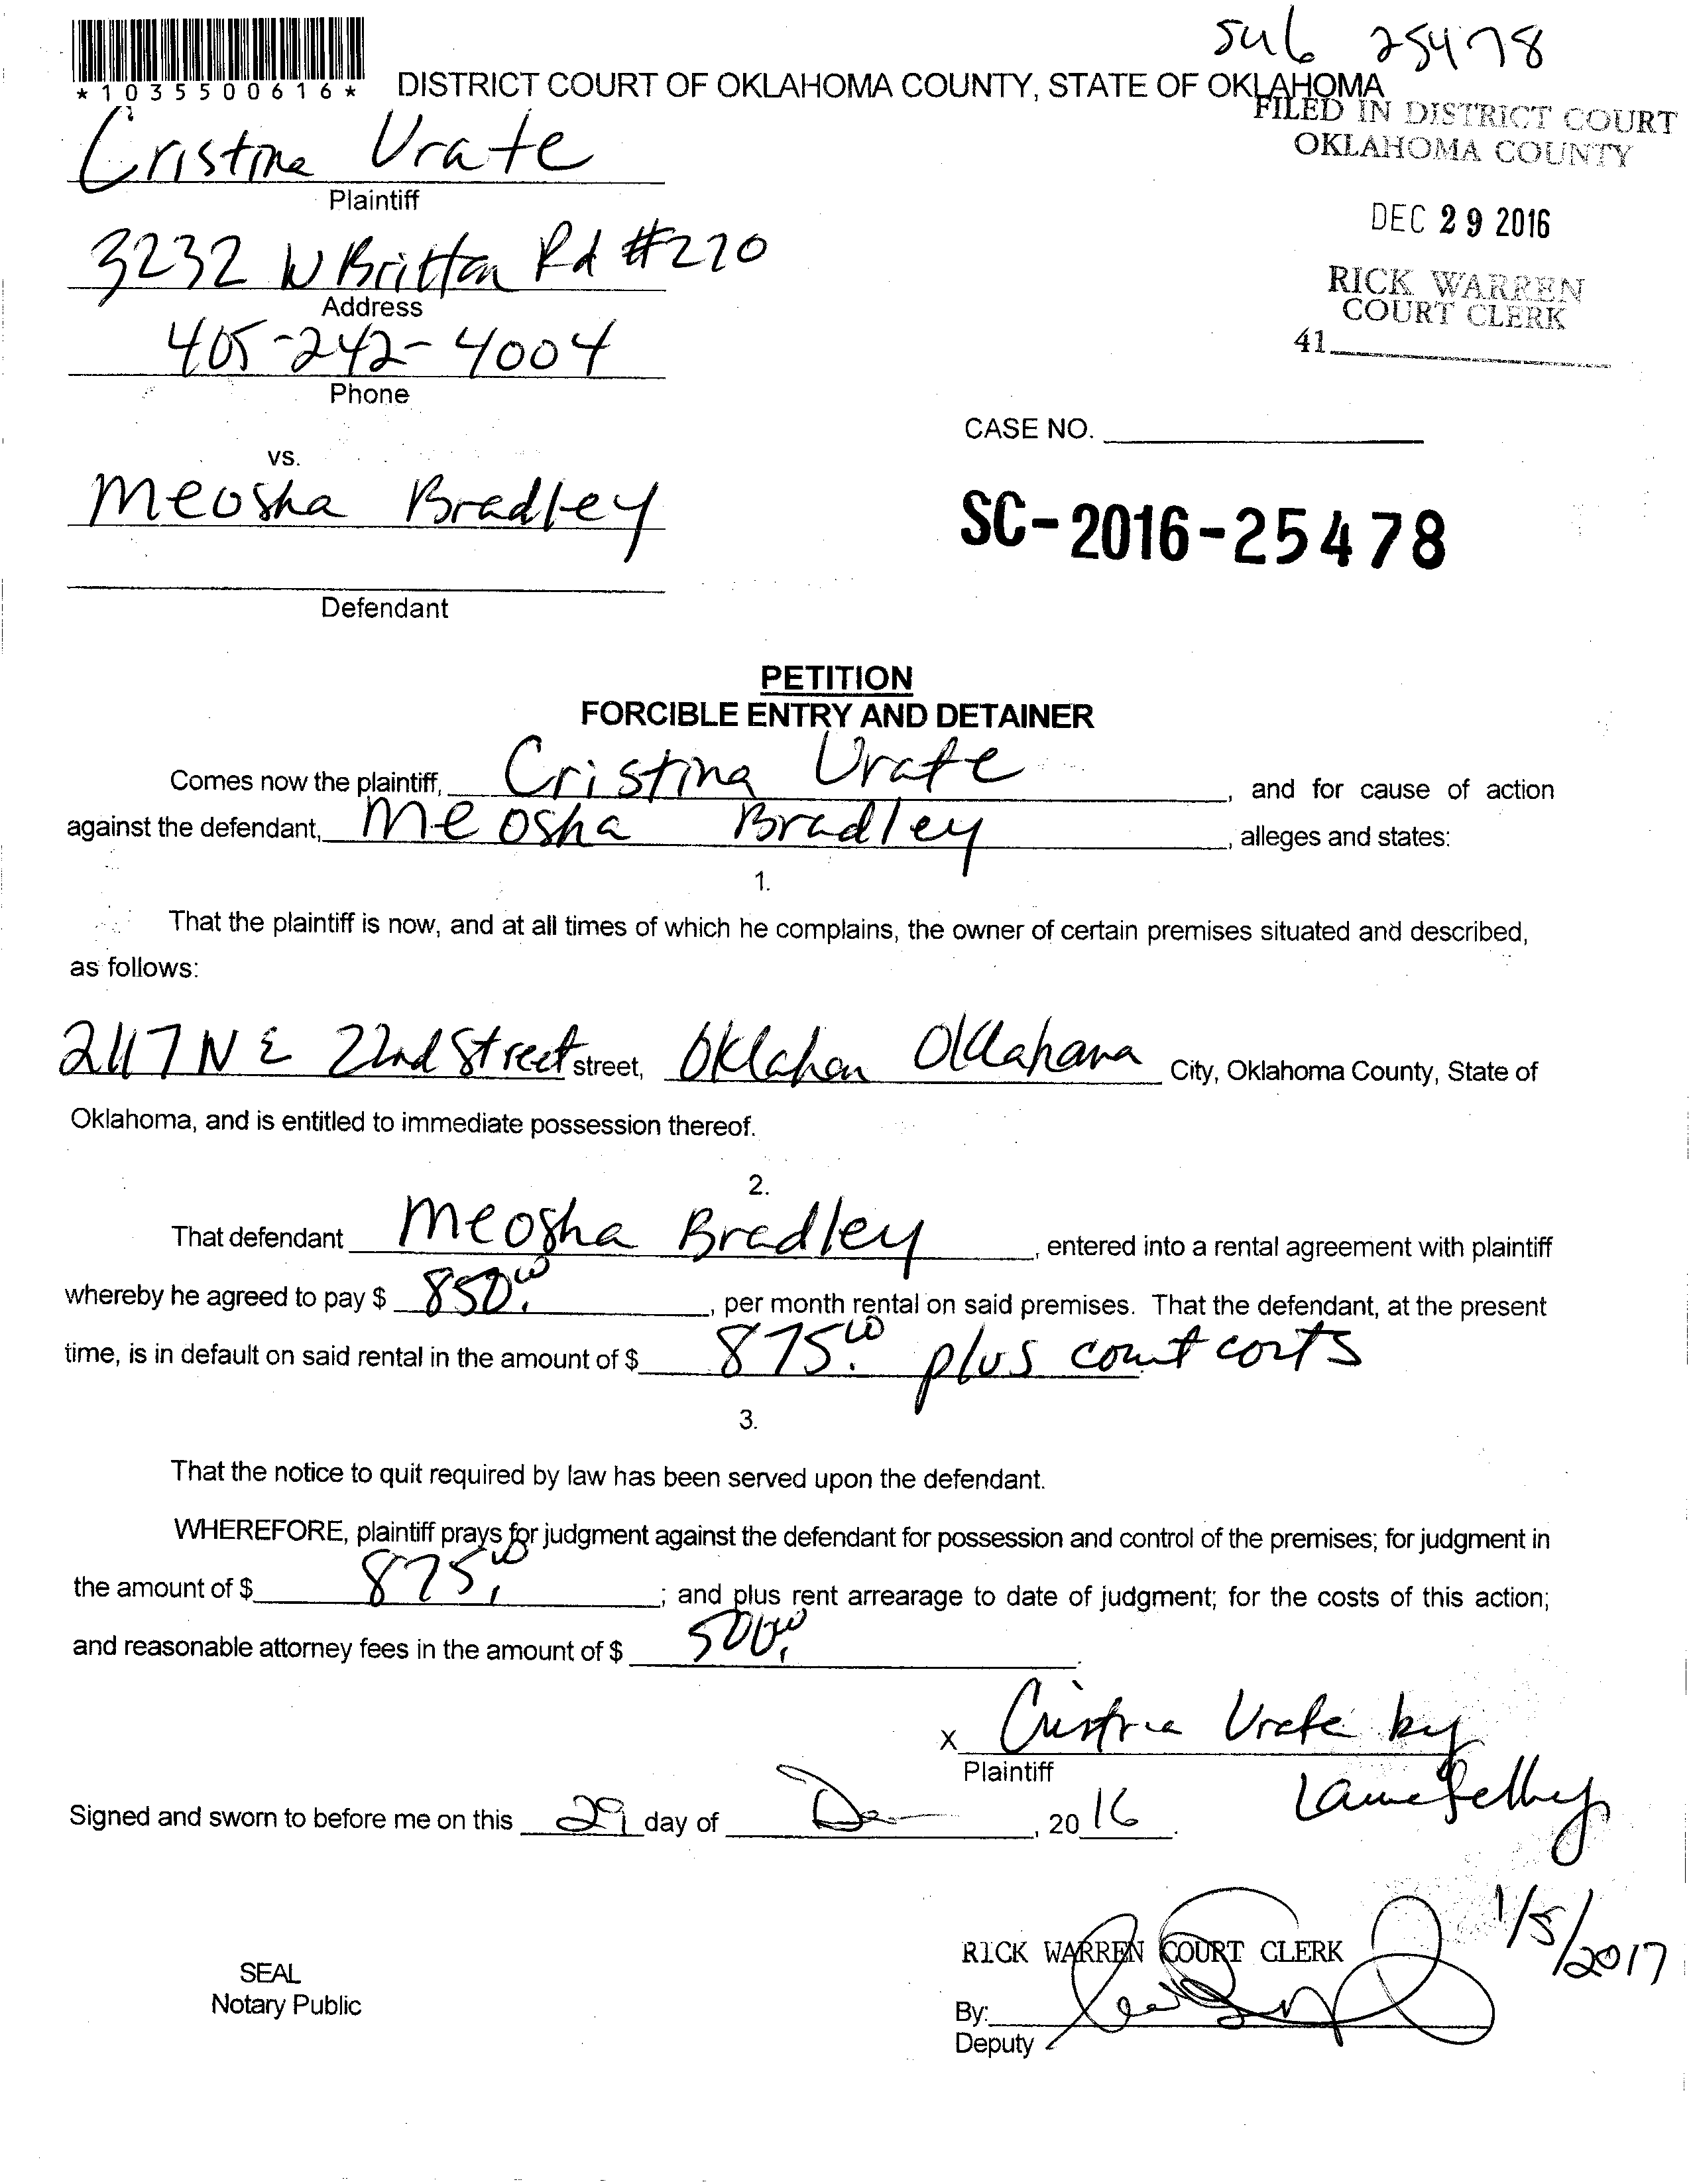 Sub 25478
*1035500616*
DISTRICT COURT OF OKLAHOMA COUNTY, STATE OF OKLAHOMA
FILED IN DISTRICT COURT
OKLAHOMA COUNTY
Cristina Urate
Plaintiff
DEC 29 2016
3232 W Britton Rd #220
Address
RICK WARREN
COURT CLERK
41
405-242-4004
Phone
CASE NO.
vs.
Meosha Bradley
SC-2016-25478
Defendant
PETITION
FORCIBLE ENTRY AND DETAINER
Comes now the plaintiff, Cristina Urate, and for cause of action
against the defendant, Meosha Bradley, alleges and states:
1.
That the plaintiff is now, and at all times of which he complains, the owner of certain premises situated and described,
as follows:
2117 NE 22nd Street street, Oklahom Oklahoma City, Oklahoma County, State of
Oklahoma, and is entitled to immediate possession thereof.
2.
That defendant Meosha Bradley, entered into a rental agreement with plaintiff
whereby he agreed to pay $ 850.00, per month rental on said premises. That the defendant, at the present
time, is in default on said rental in the amount of $ 875.00 plus court costs
3.
That the notice to quit required by law has been served upon the defendant.
WHEREFORE, plaintiff prays for judgment against the defendant for possession and control of the premises; for judgment in
the amount of $ 875.00; and plus rent arrearage to date of judgment; for the costs of this action;
and reasonable attorney fees in the amount of $ 500.00.
X Cristina Urate by
Plaintiff
Signed and sworn to before me on this 29 day of Dec, 2016.
1/5/2017
RICK WARREN COURT CLERK
SEAL
Notary Public
By:
Deputy